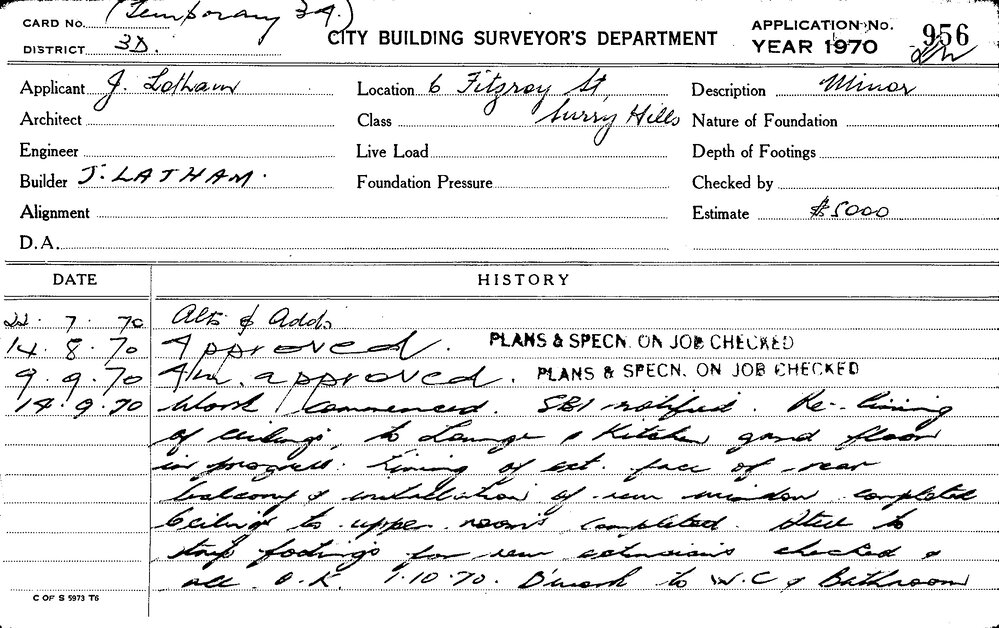 CARD No. (Temporary 34.)
DISTRICT 3D.
CITY BUILDING SURVEYOR'S DEPARTMENT
APPLICATION No.
YEAR 1970
956
Applicant J. Latham
Location 6 Fitzroy St,
Description Minor
Architect
Class Surry Hills
Nature of Foundation
Engineer
Live Load
Depth of Footings
Builder J. LATHAM.
Foundation Pressure
Checked by
Alignment
Estimate $5000
D.A.
DATE HISTORY
22. 7. 70 Alts & Adds
14. 8. 70 Approved. PLANS & SPECN. ON JOB CHECKED
9. 9. 70 Am. approved. PLANS & SPECN. ON JOB CHECKED
14. 9. 70 Work commenced. SBI notified. Re-lining
of ceilings, to Lounge & Kitchen grnd floor
in progress. Lining of ext. face of rear
balcony & installation of new window completed
Ceilings to upper rooms completed. Steel to
strip footings for new extensions checked &
all O.K. 1.10.70. B'work to W.C & Bathroom
C OF S 5973 T6